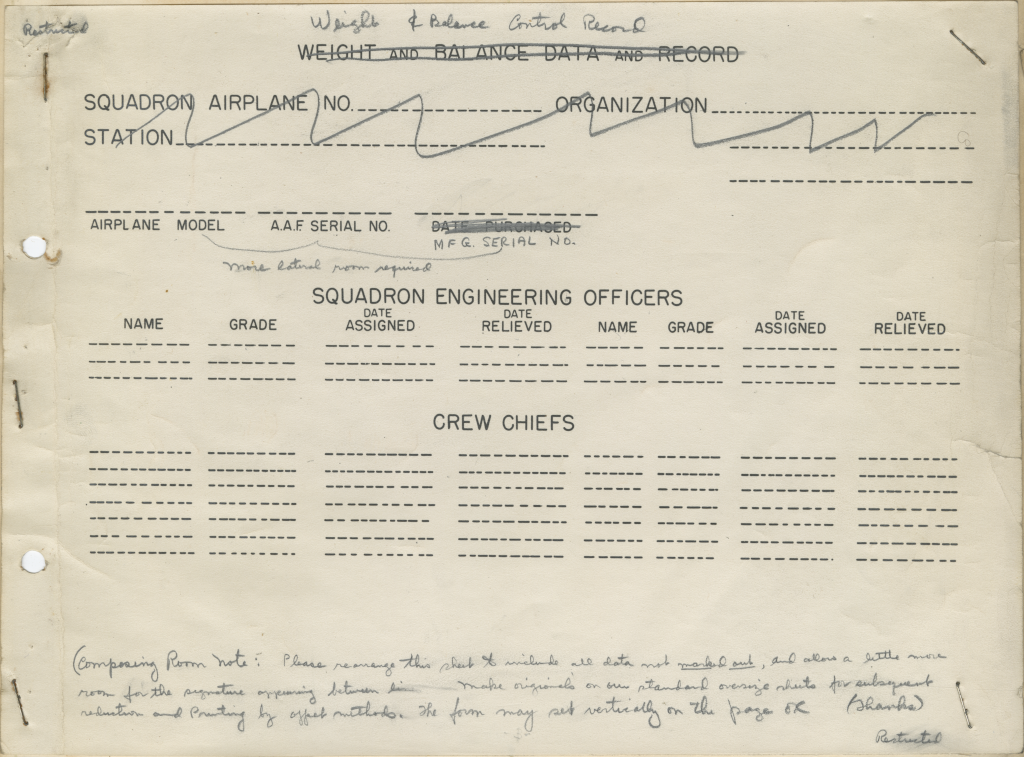 Restricted
Weight & Balance Control Record
WEIGHT AND BALANCE DATA AND RECORD
SQUADRON AIRPLANE NO. ORGANIZATION
STATION
AIRPLANE MODEL A.A.F. SERIAL NO. DATE PURCHASED
MFG. SERIAL NO.
More lateral room required
SQUADRON ENGINEERING OFFICERS
NAME GRADE DATE ASSIGNED DATE RELIEVED NAME GRADE DATE ASSIGNED DATE RELIEVED
CREW CHIEFS
(Composing Room Note: Please rearrange this sheet to include all data not marked out, and allow a little more
room for the signature appearing between Make originals on our standard oversize sheets for subsequent
reduction and Printing by offset methods. The form may set vertically on the page OK (Thanks)
Restricted